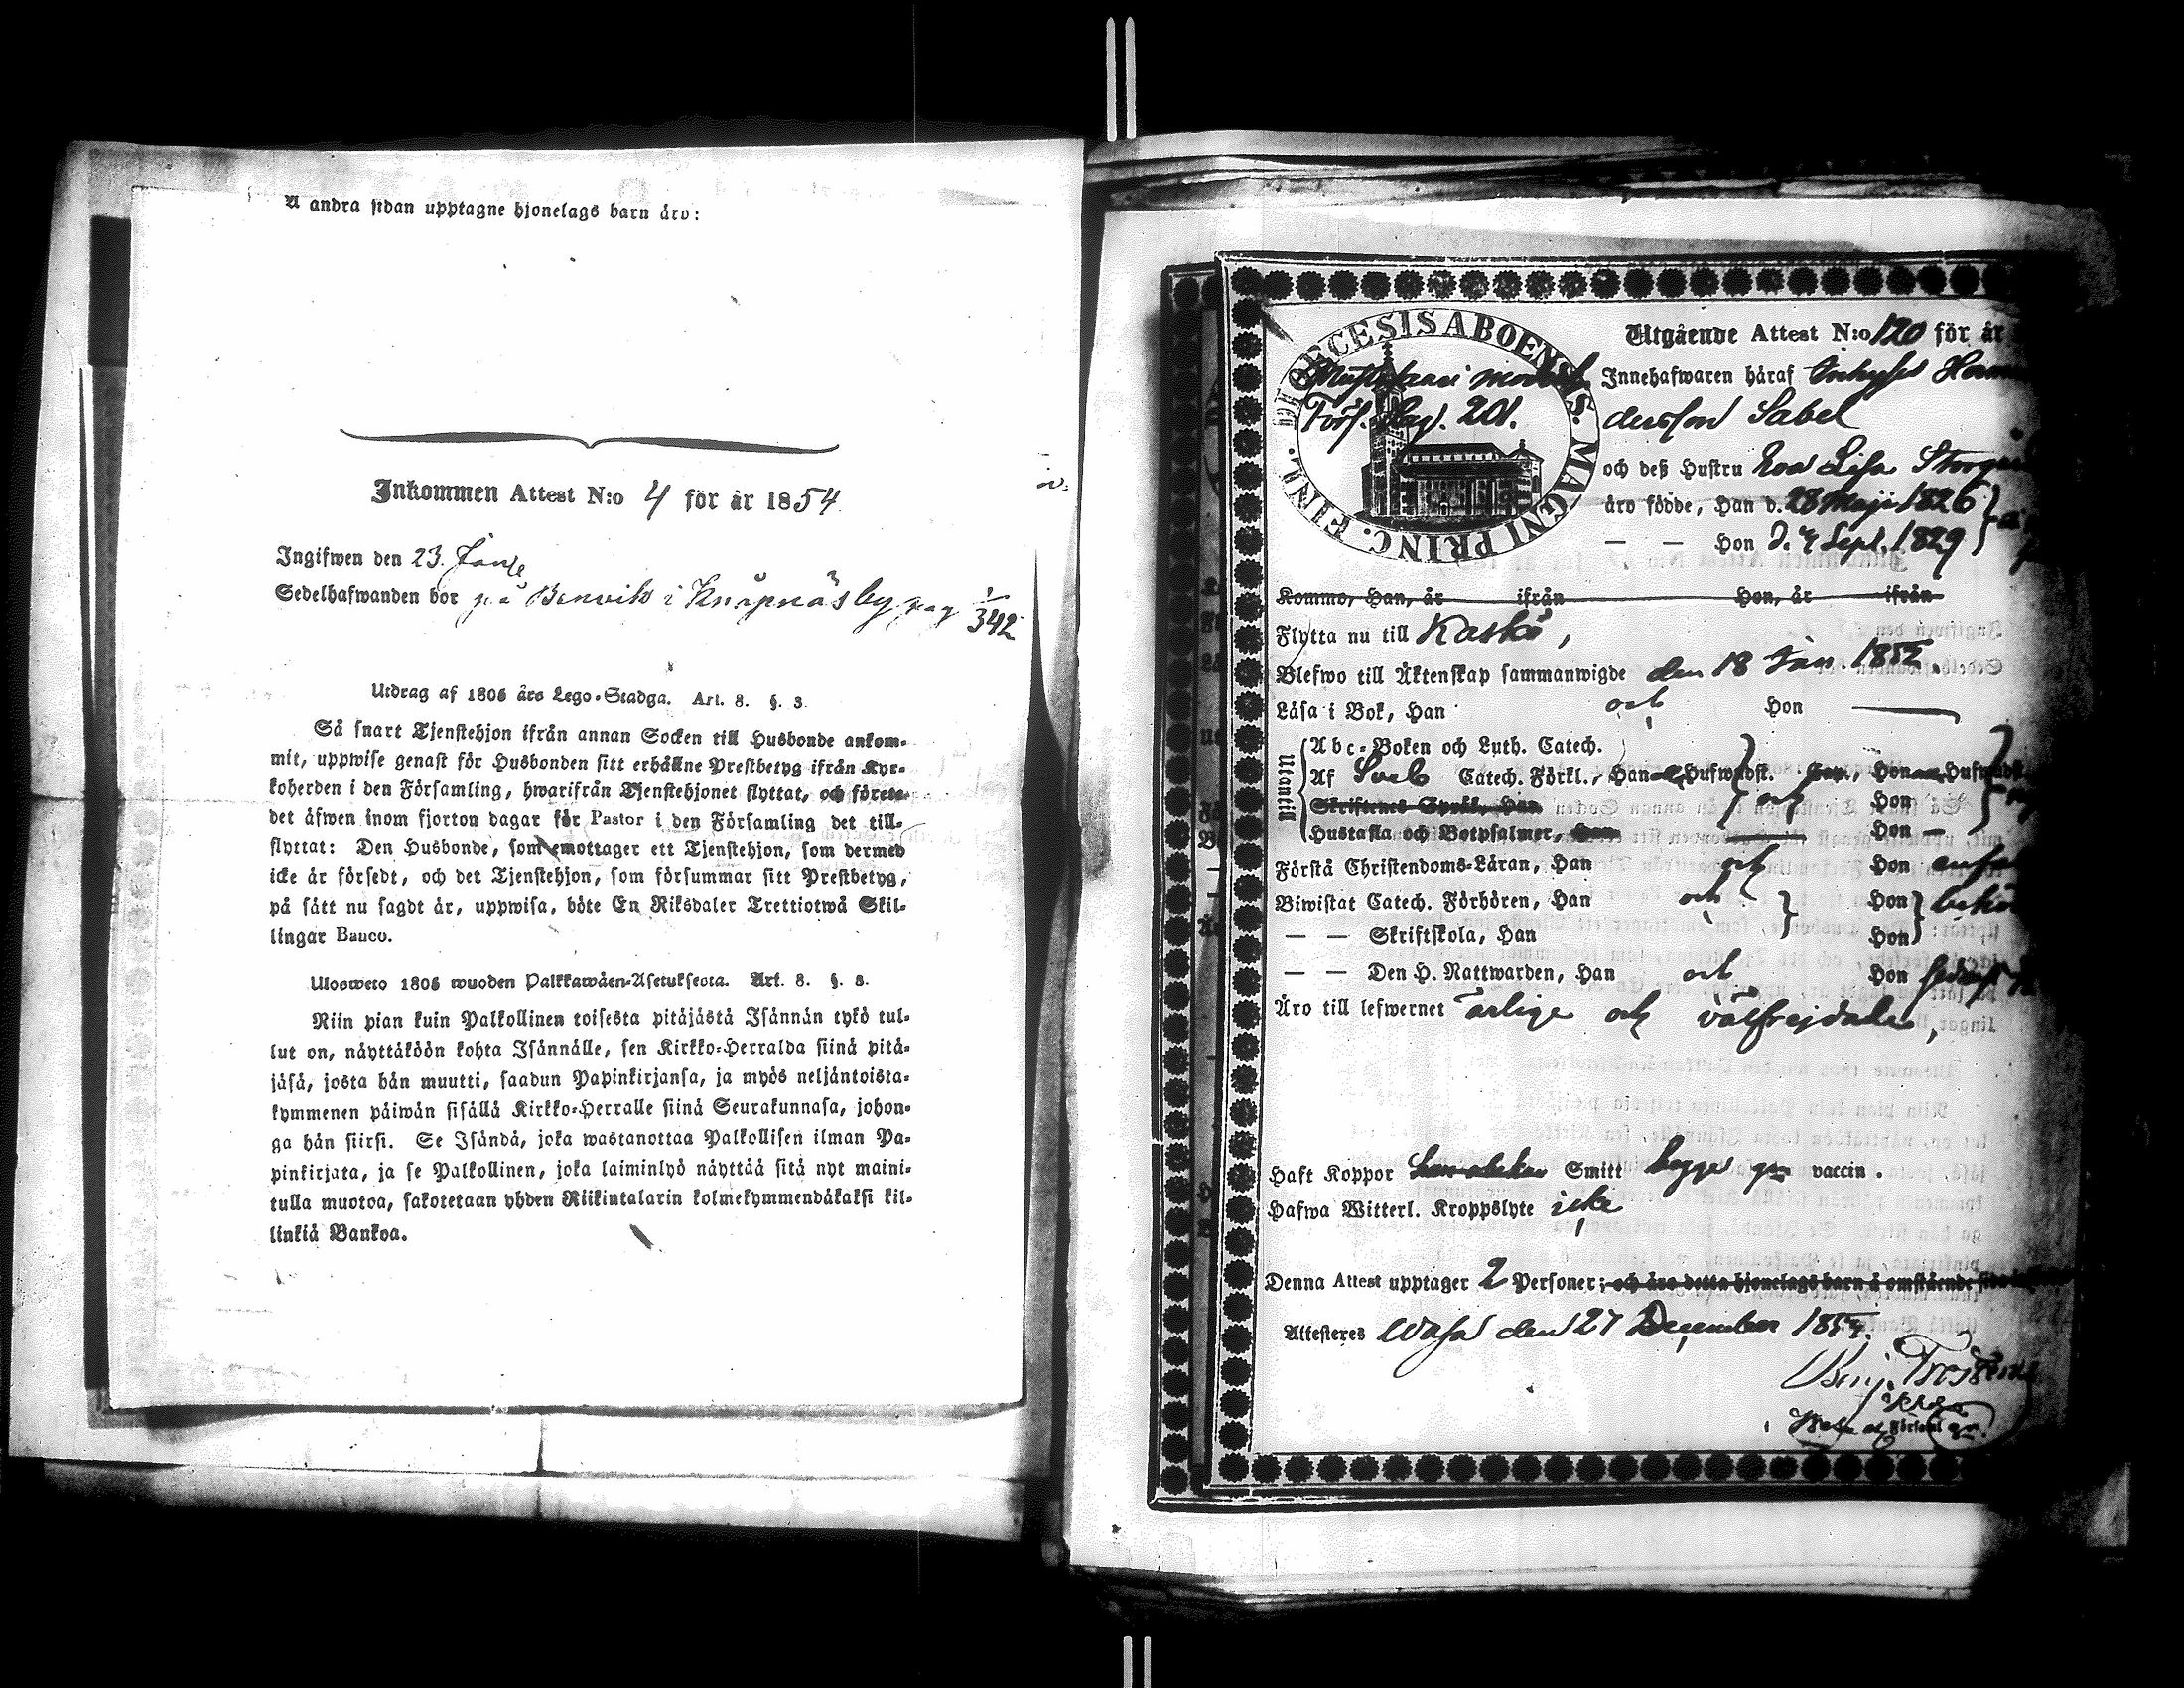 Å andra sidan upptagne hjonelags barn äro:
Inkommen Attest N:o 4 för år 1854
Ingifwen den 23.
Sedelhafwanden bor på Benvik i Knåpnäsby pag 1/342
Utdrag af 1805 års Lego-Stadga. Art. 8. §. 3.
Så snart Tjenstehjon ifrån annan Socken till Husbonde ankom-
mit, uppwise genast för Husbonden sitt erhållne Prestbetyg ifrån Kyr-
koherden i den Församling, hwarifrån Tjenstehjonet flyttat, och förete-
det äfwen inom fjorton dagar för Pastor i den Församling det till-
flyttat: Den Husbonde, som emottager ett Tjenstehjon, som dermed
icke är försedt, och det Tjenstehjon, som försummar sitt Prestbetyg,
på sätt nu sagdt är, uppwisa, böte En Riksdaler Trettiotwå Skil-
lingar Banco.
Ulosweto 1805 wuoden Palkkawäen-Asetuksesta. Art. 8. §. 3.
Niin pian kuin Palkollinen toisesta pitäjästä Isännän tykö tul-
lut on, näyttäköön kohta Isännälle, sen Kirkko-Herralda siinä pitä-
jäsä, josta hän muutti, saadun Papinkirjansa, ja myös neljäntoista-
kymmenen päiwän sisällä Kirkko-Herralle siinä Seurakunnasa, johon-
ga hän siirsi. Se Isändä, joka wastanottaa Palkollisen ilman Pa-
pinkirjata, ja se Palkollinen, joka laiminlyö näyttää sitä nyt maini-
tulla muotoa, sakotetaan yhden Riikintalarin kolmekymmendäkaksi kil-
linkiä Bankoa.
DIOECESIS ABOENSIS. MAGNI PRINC. FINL.
Förs. Pag. 201.
Utgående Attest N:o 120 för år
Innehafwaren häraf
dersson Sabel
och deß Hustru Eva Lisa
äro födde, Han d. 28 Maji 1826
— — Hon d. 4 Sept. 1829
Kommo, Han, år ifrån Hon, år ifrån
Flytta nu till Kaskö,
Blefwo till Äktenskap sammanwigde den 18 Jan. 1852.
Läsa i Bok, Han och Hon —
Utantill
Abc-Boken och Luth. Catech.
Af Sveb Catech. Förkl., Han och Hufwudst. Hon Hufwudst.
Skriftenes Språk, Han och Hon
Hustafla och Botpsalmer, Han Hon —
Förstå Christendoms-Läran, Han och Hon
Biwistat Catech. Förhören, Han och Hon
— — Skriftskola, Han Hon
— — Den H. Nattwarden, Han och Hon
Äro till lefwernet ärlige och välfrejdade,
Haft Koppor Smitt begge gm vaccin.
Hafwa Witterl. Kroppslyte icke
Denna Attest upptager 2 Personer; och äro detta hjonelags barn å omstående
Attesteres Wasa den 27 December 1854.
Benj.